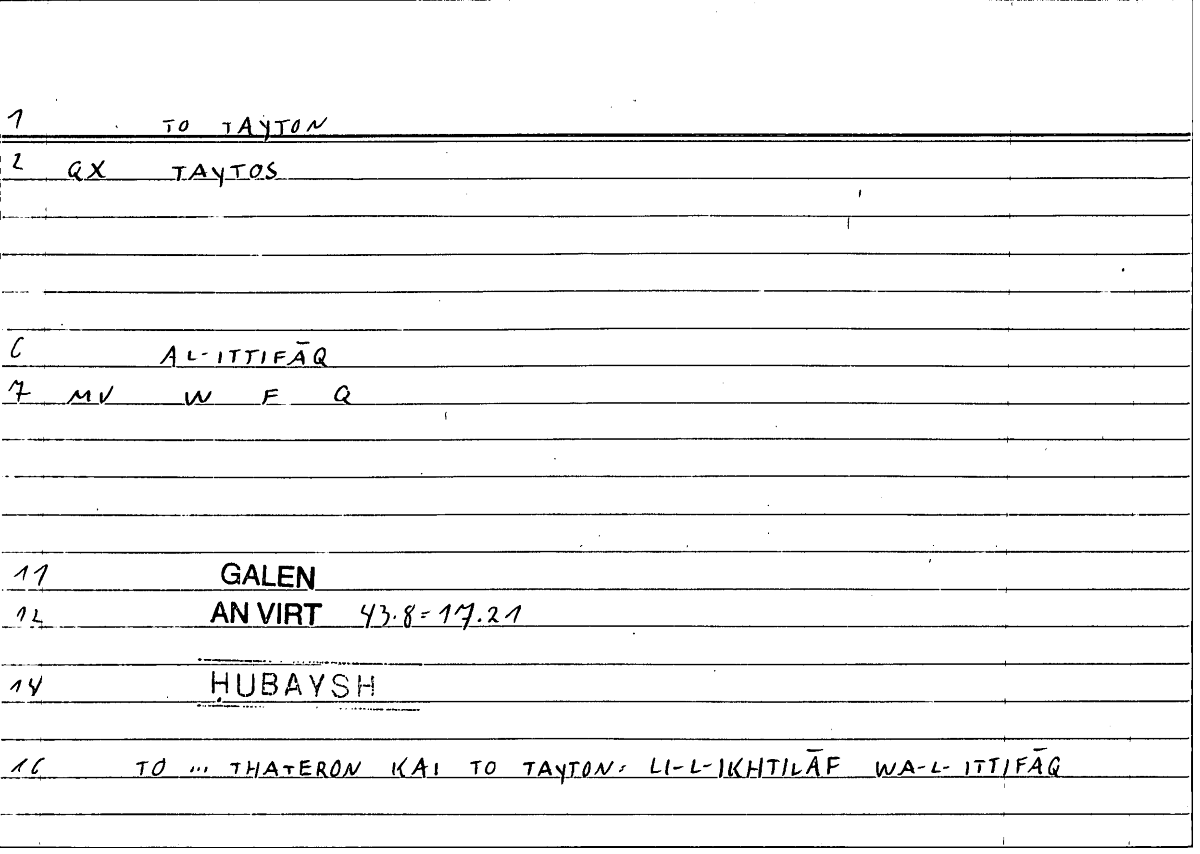 1 TO TAYTON
2 QX TAYTOS
6 AL-ITTIFĀQ
7 MV W F Q
11 GALEN
12 AN VIRT 43.8=17.21
14 ḤUBAYSH
16 TO ... THATERON KAI TO TAYTON: LI-L-IKHTILĀF WA-L-ITTIFĀQ